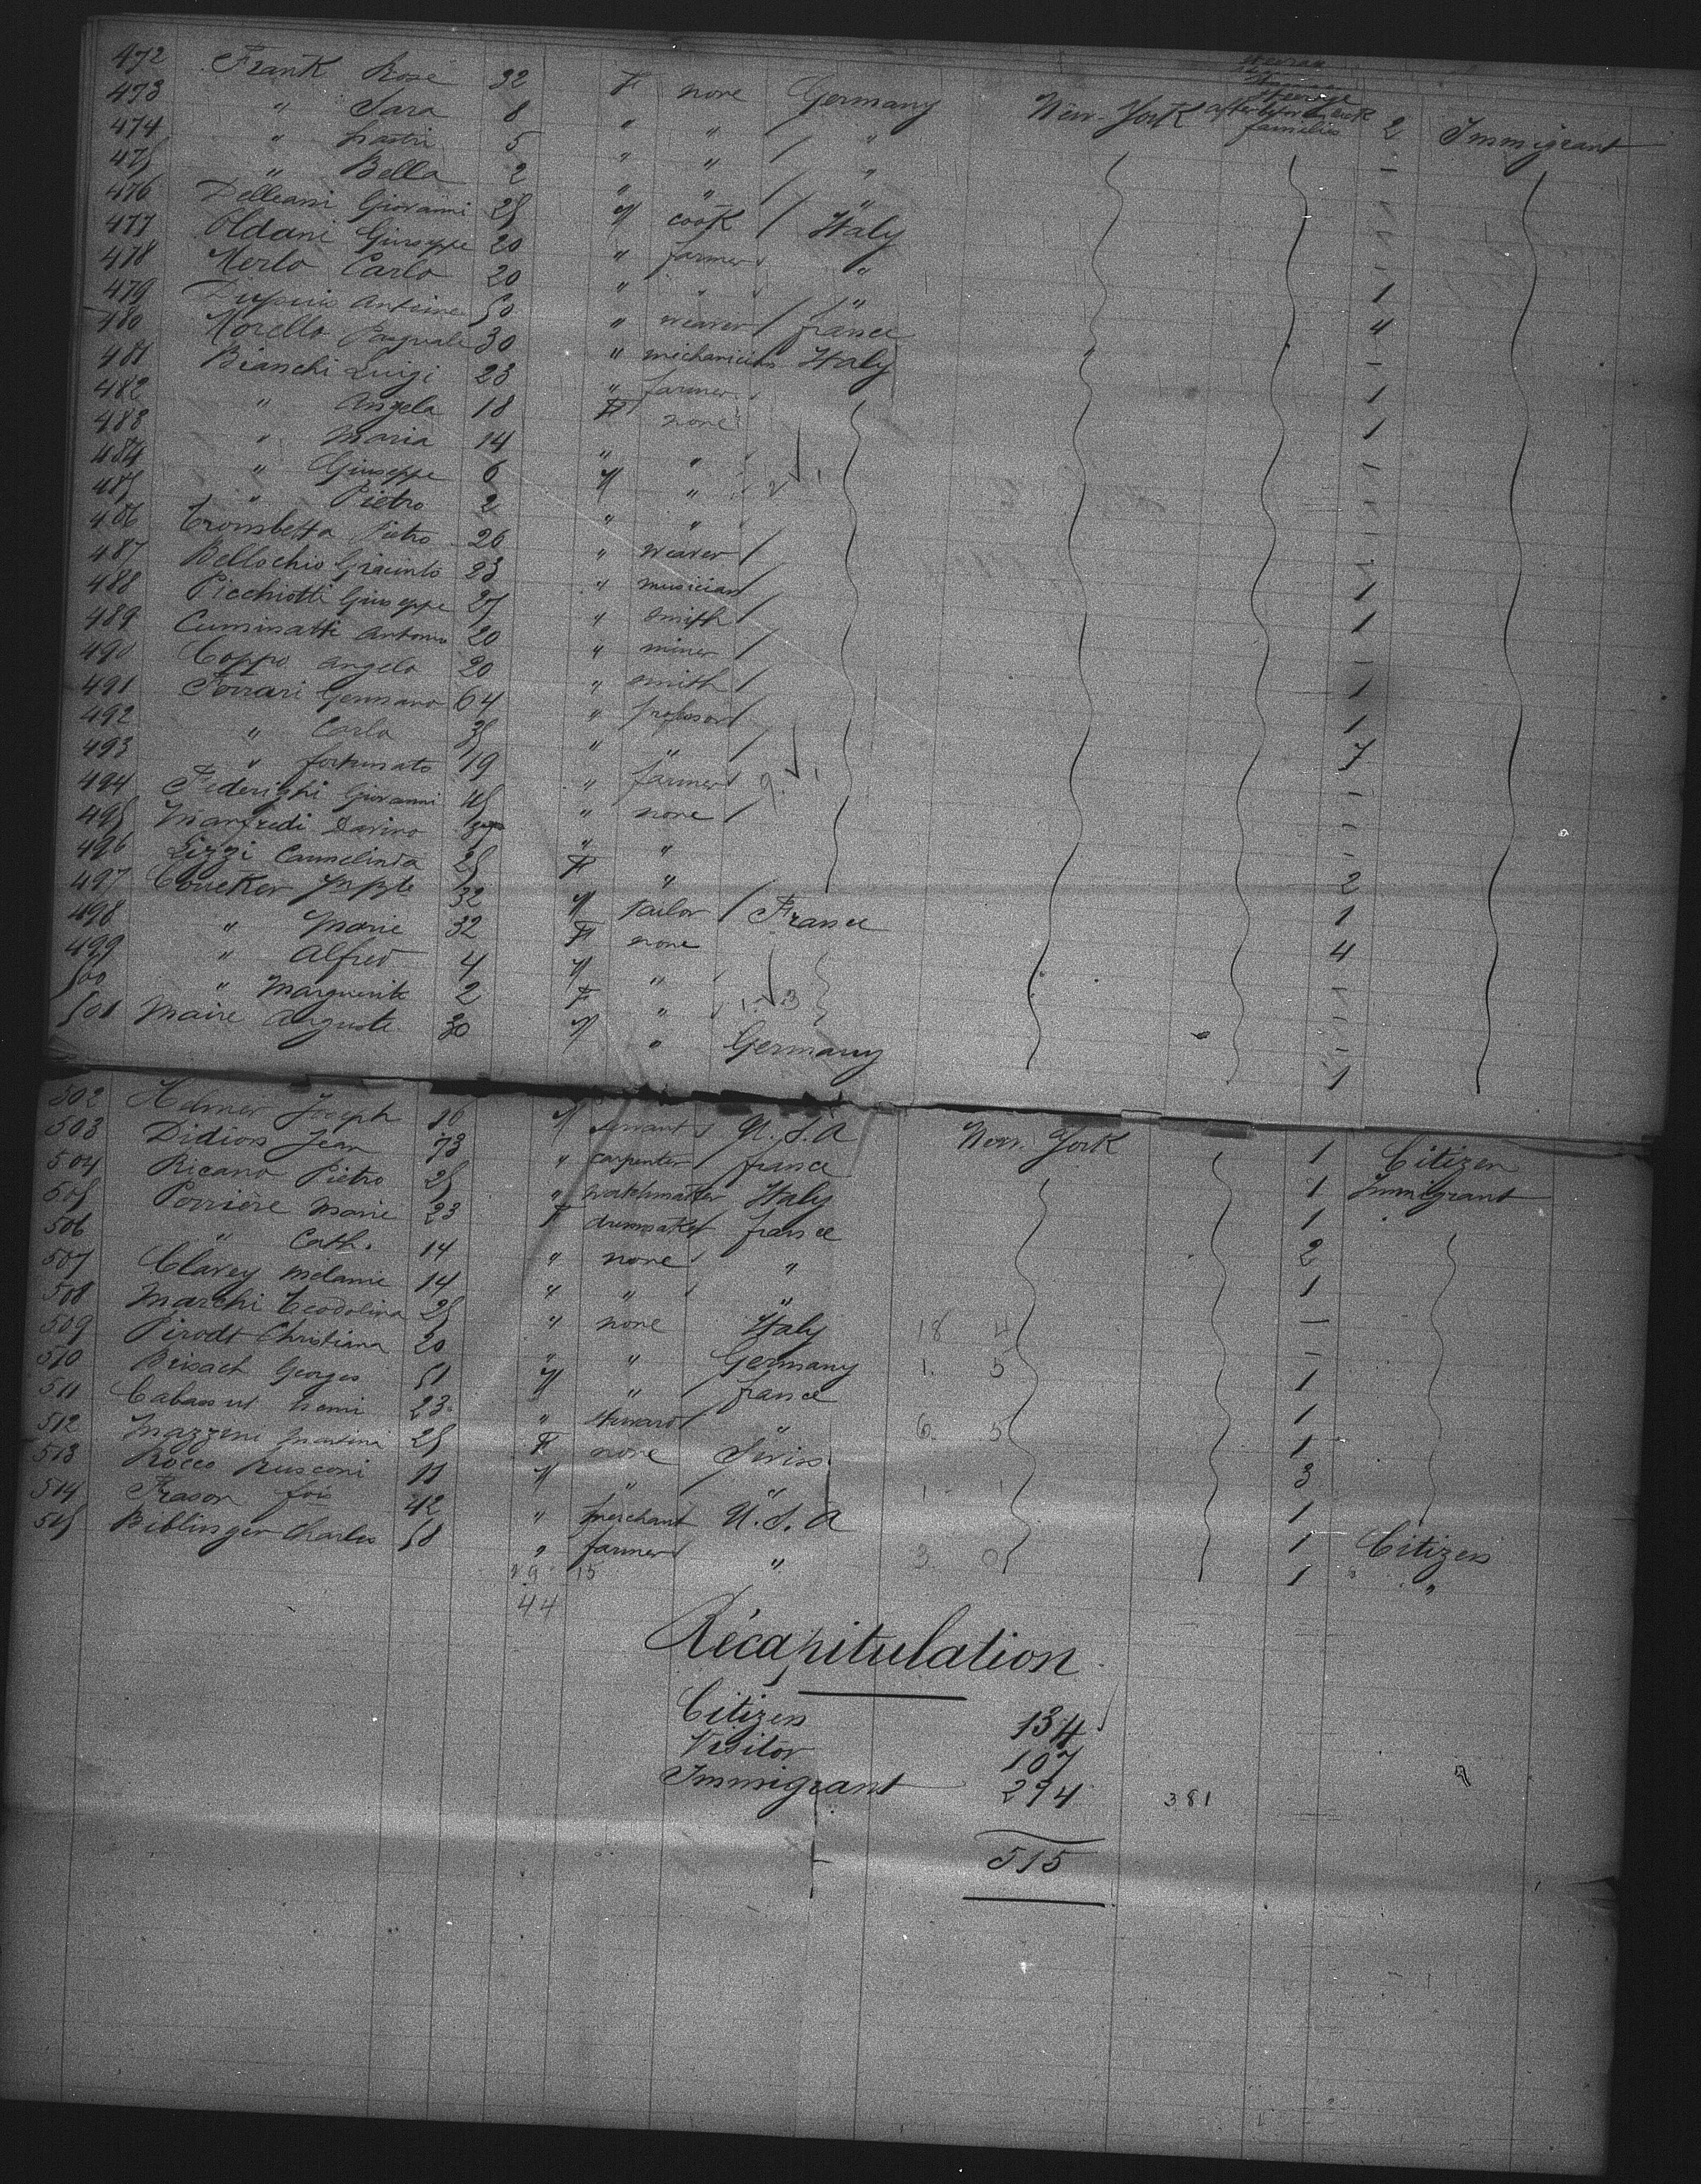 472 Frank Rose 32 F none Germany New-York 2 Immigrant
473 " Sara 8 " " / " -
474 " 5 " " / " -
475 " Bella 2 " " / " -
476 Delleani Giovanni 25 M cook / Italy -
477 Oldani Giuseppe 20 " farmer " 1
478 Merlo Carlo 20 " " / " 4
479 Dupuis Antoine 50 " weaver / france -
480 Morello Pasquale 30 " mechanician Italy 1
481 Bianchi Luigi 23 " farmer 1
482 " Angela 18 F none -
483 " Maria 14 " " -
484 " Giuseppe 6 M " -
485 " Pietro 2 " " -
486 Trombetta Pietro 26 " weaver / 1
487 Bellochio Giacinto 23 " musician / 1
488 Picchiotti Giuseppe 27 " smith / -
489 Cuminatti Antonio 20 " miner / 1
490 Coppo Angelo 20 " smith / 1
491 Ferrari Germano 64 " professor / 7
492 " Carlo " " / -
493 " fortunato 19 " farmer -
494 Federighi Giovanni 45 " none / -
495 Manfredi Davino " " 2
496 Lizzi Carmelinda 25 F " 1
497 32 M tailor / France 4
498 " Marie 32 F none -
499 " Alfred 4 M " -
500 " Marguerite 2 F " -
501 Maire Auguste 30 M " Germany 1
502 Helmer Joseph 16 M servant U.S.A New-York 1 Citizen
503 Didion Jean 73 " carpenter / france 1 Immigrant
504 Ricano Pietro 25 " watchmaker Italy 1
505 Perrière Marie 23 F dressmaker france 2
506 " Cath. 14 " none " 1
507 Clavey Melanie 14 " " " —
508 Marchi Teodolina 25 " none Italy -
509 Pirodt Christiana 20 " " Germany 1
510 Brisach Georges 51 M " france 1
511 Cabassut henri 23 " steward / " 1
512 Mazzeni Martini 25 F none Swiss 3
513 Rocco Rusconi 11 M " / " 1
514 Frason fois 42 " merchant U.S.A 1 Citizen
515 Biblinger Charles 58 " farmer " 1 "
29 15
44
Récapitulation
Citizen 134
Visitor 107
Immigrant 274 381
515